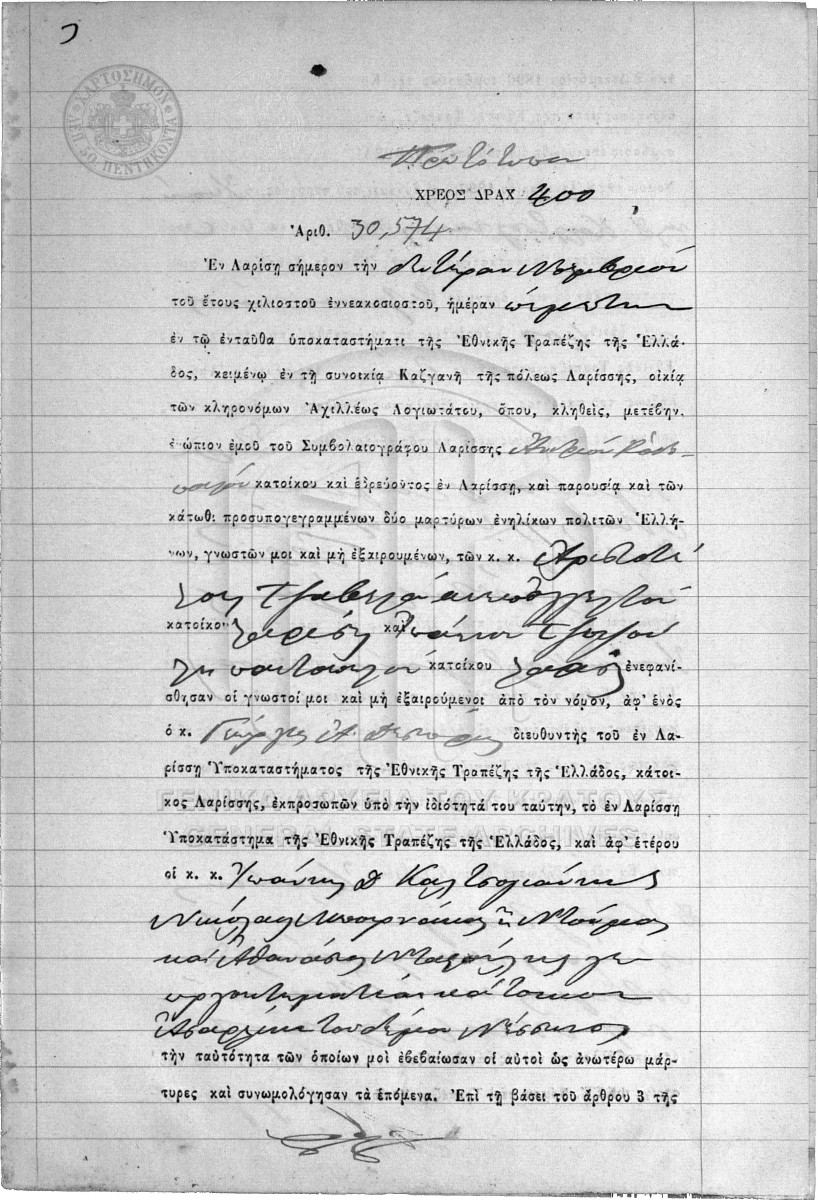 ΧΑΡΤΟΣΗΜΟΝ
ΛΕΠ. 50. ΠΕΝΤΗΚΟΝΤΑ
Πρωτότυπον
ΧΡΕΟΣ ΔΡΑΧ 400
Ἀριθ. 30,574
Ἐν Λαρίσῃ σήμερον τὴν δευτέραν Νοεμβρίου
τοῦ ἔτους χιλιοστοῦ ἐννεακοσιοστοῦ, ἡμέραν πέμπτην
ἐν τῷ ἐνταῦθα ὑποκαταστήματι τῆς Ἐθνικῆς Τραπέζης τῆς Ἑλλά-
δος, κειμένῳ ἐν τῇ συνοικίᾳ Καζγανῆ τῆς πόλεως Λαρίσσης, οἰκίᾳ
τῶν κληρονόμων Ἀχιλλέως Λογιωτάτου, ὅπου, κληθεὶς, μετέβην.
ἐνώπιον ἐμοῦ τοῦ Συμβολαιογράφου Λαρίσσης
κατοίκου καὶ ἑδρεύοντος ἐν Λαρίσσῃ, καὶ παρουσίᾳ καὶ τῶν
κάτωθι προσυπογεγραμμένων δύο μαρτύρων ἐνηλίκων πολιτῶν Ἑλλή-
νων, γνωστῶν μοι καὶ μὴ ἐξαιρουμένων, τῶν κ. κ. Ἀριστοτέ
λους Τζαβελᾶ
κατοίκου Λαρίσης καὶ Ἰωάννου
παντοπώλου κατοίκου Λαρίσης ἐνεφανί-
σθησαν οἱ γνωστοί μοι καὶ μὴ ἐξαιρούμενοι ἀπὸ τὸν νόμον, ἀφ' ἑνὸς
ὁ κ. Γεώργιος Α. διευθυντὴς τοῦ ἐν Λα-
ρίσσῃ Ὑποκαταστήματος τῆς Ἐθνικῆς Τραπέζης τῆς Ἑλλάδος, κάτοι-
κος Λαρίσσης, ἐκπροσωπῶν ὑπὸ τὴν ἰδιότητά του ταύτην, τὸ ἐν Λαρίσσῃ
ΓΕΝΙΚΑ ΑΡΧΕΙΑ ΤΟΥ ΚΡΑΤΟΥΣ
Ὑποκατάστημα τῆς Ἐθνικῆς Τραπέζης τῆς Ἑλλάδος, καὶ ἀφ' ἑτέρου
GENERAL STATE ARCHIVES
οἱ κ. κ. Ἰωάννης Δ Καλτσογιάννης
Νικόλαος Μπαρνάκας ἢ Ντούμας
καὶ Ἀθανάσιος
κτηματίαι κάτοικοι
τοῦ δήμου Νέσσωνος
τὴν ταὐτότητα τῶν ὁποίων μοὶ ἐβεβαίωσαν οἱ αὐτοὶ ὡς ἀνωτέρω μάρ-
τυρες καὶ συνωμολόγησαν τὰ ἑπόμενα. Ἐπὶ τῇ βάσει τοῦ ἄρθρου 3 τῆς